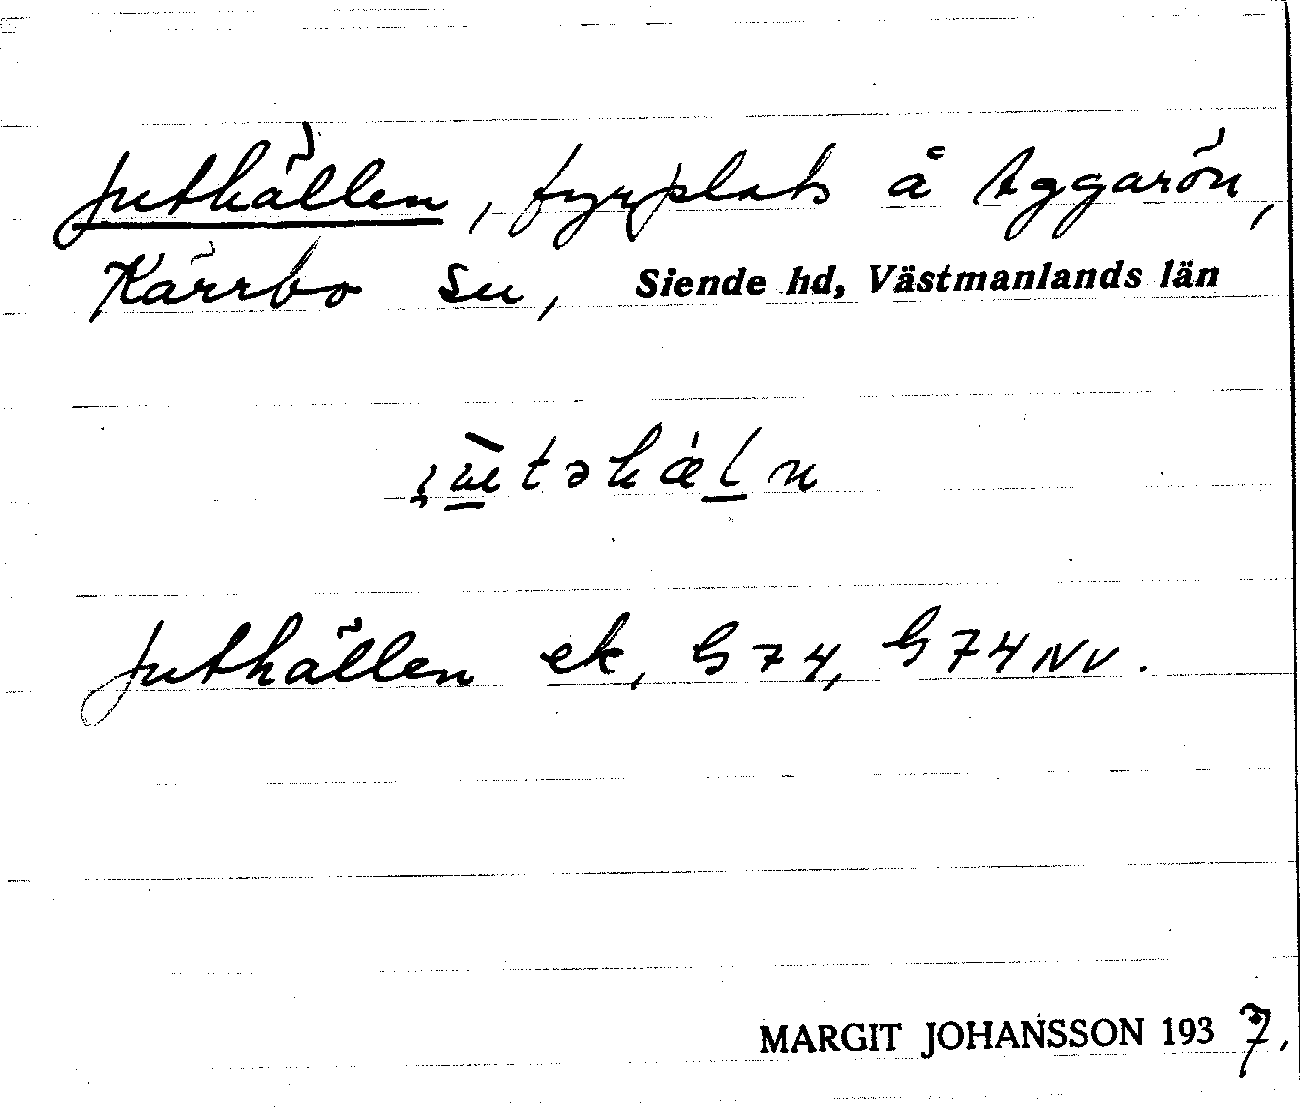 Juthällen, fyrplats å Aggarön,
Kärrbo sn, Siende hd, Västmanlands län
Juthällen ek, G 74, G 74 NV.
MARGIT JOHANSSON 1937.